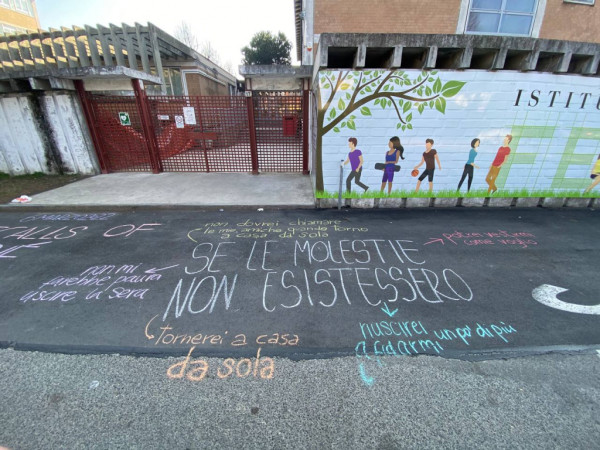 ISTITU
FE
non dovrei chiamare
le mie amiche quando torno
a casa da sola
potrei vestirmi
come voglio
SE LE MOLESTIE
NON ESISTESSERO
non mi
farebbe paura
uscire la sera
ALLS OF
tornerei a casa
da sola
riuscirei un po' di più
a fidarmi